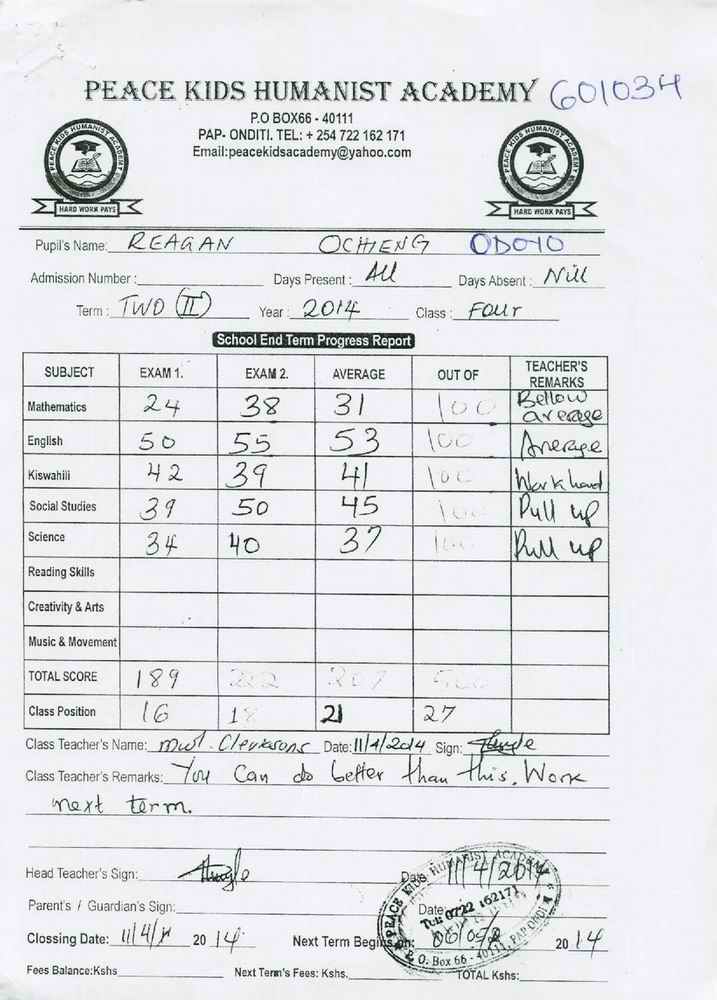 PEACE KIDS HUMANIST ACADEMY 601034
P.O BOX66 - 40111
PAP- ONDITI. TEL: + 254 722 162 171
Email:peacekidsacademy@yahoo.com
PEACE KIDS HUMANIST ACADEMY
HARD WORK PAYS
PEACE KIDS HUMANIST ACADEMY
HARD WORK PAYS
Pupil's Name: REAGAN OCHIENG ODOYO
Admission Number : Days Present : All Days Absent : Nill
Term : TWO (II) Year : 2014 Class : Four
School End Term Progress Report
SUBJECT EXAM 1. EXAM 2. AVERAGE OUT OF TEACHER'S REMARKS
Mathematics 24 38 31 100 Bellow average
English 50 55 53 100 Average
Kiswahili 42 39 41 100 Work hard
Social Studies 39 50 45 100 Pull up
Science 34 40 37 100 Pull up
Reading Skills
Creativity & Arts
Music & Movement
TOTAL SCORE 189 222 207 500
Class Position 16 18 21 27
Class Teacher's Name: Date: 11/4/2014 Sign:
Class Teacher's Remarks: You Can do better than this. Work
next term.
Head Teacher's Sign: Date 11/4/2014
Parent's / Guardian's Sign: Date:
PEACE KIDS HUMANIST ACADEMY
Tel: 0722 162171
P. O. Box 66 - 40111, PAP ONDITI
Clossing Date: 11/4/ 20 14 Next Term Begins on: 06/05/ 20 14
Fees Balance:Kshs. Next Term's Fees: Kshs. TOTAL Kshs: